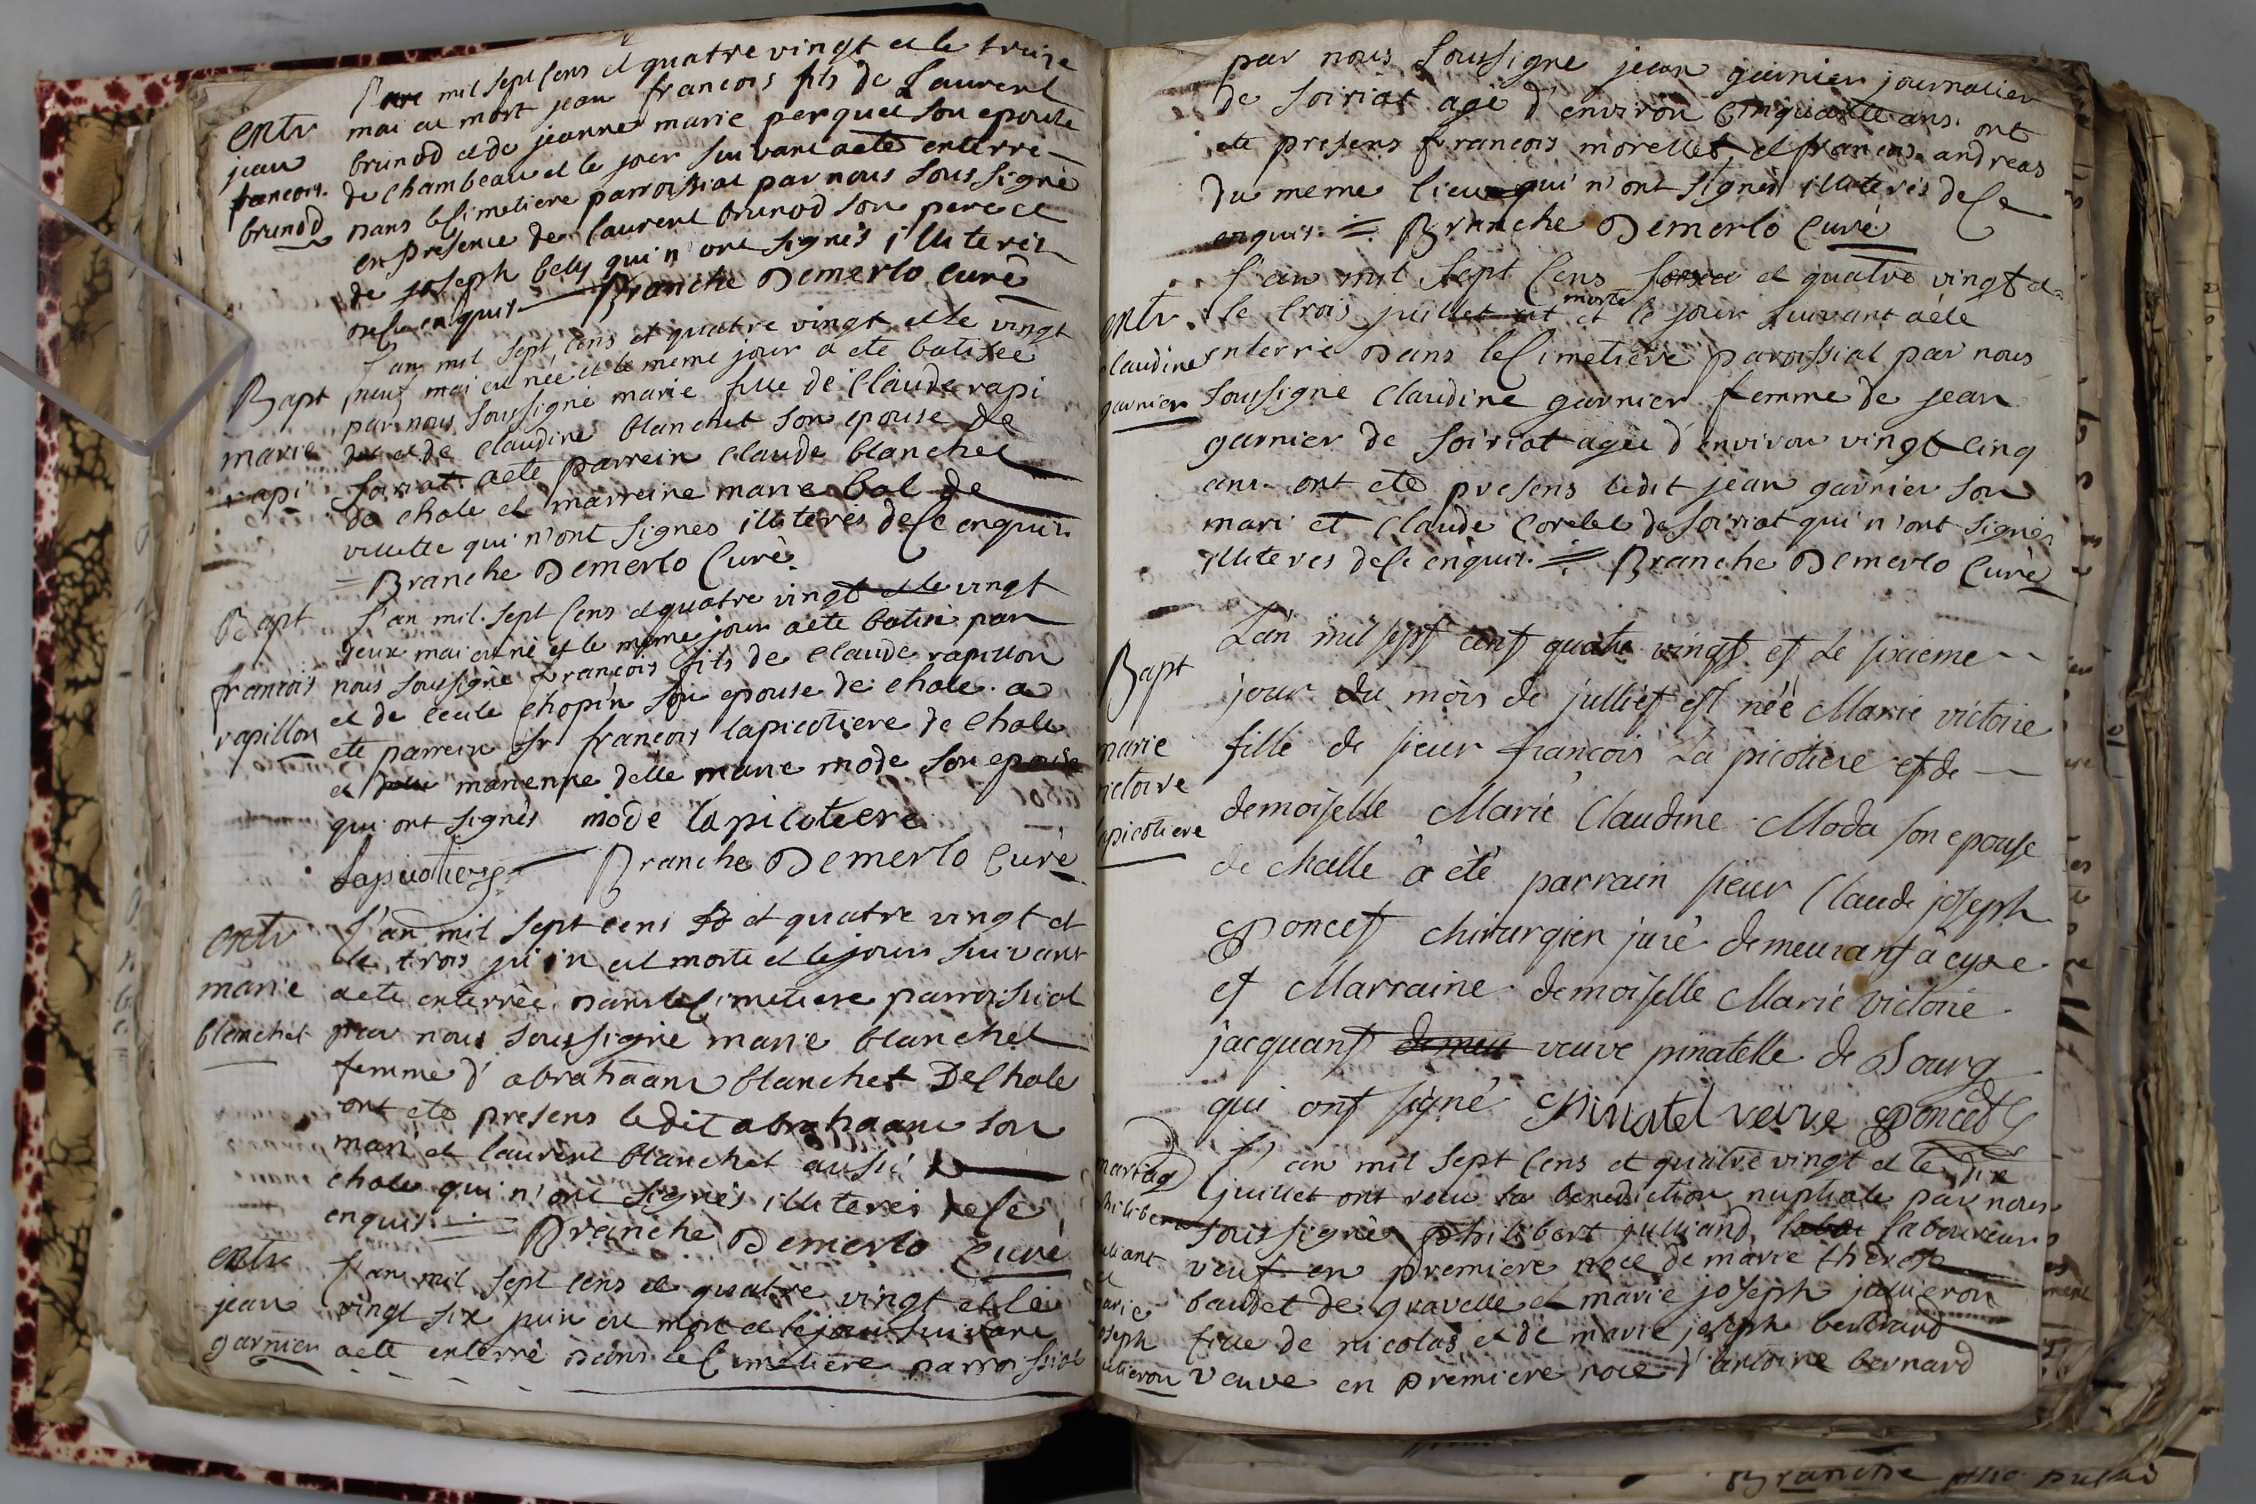 l'an mil sept cens et quatre vingt et le treize
entr
mai est mort jean francois fils de Laurent
jean
brunod et de jeanne marie perquet son epouse
francois
de Chambeau et le jour suivant a ete enterré
brunod
dans le Cimetiere parroissial par nous sous signé
en presence de laurent brunod son pere et
de joseph bely qui n'ont signés illiterés
de Ce enquis Branche Demerlo Curé
l'an mil sept cens et quatre vingt et le vingt
Bapt
neuf mai est née et le meme jour a ete batisee
par nous soussigné marie fille de Claude rapi
marie
et de Claudine blanchet son epouse de
rapi
soiriat a ete parrein Claude blanchet
de Chale et marreine marie bal de
villette qui n'ont signés illiterés de Ce enquis
= Branche Demerlo Curé
Bapt
l'an mil sept Cens et quatre vingt et le vingt
deux mai est né et le meme jour a ete batisé par
francois
nous soussigné francois fils de Claude rapillon
rapillon
et de Cecile Chopin son epouse de Chale a
ete parrein sr francois lapicotiere de Chale
et marienne delle marie mode son epouse
qui ont signés mode lapicoteere
Lapicotiere Branche Demerlo Curé
entr
l'an mil sept cens et quatre vingt et
le trois juin est morte et le jour suivant
marie
a ete enterrée dans le Cimetiere parroissial
blanchet
par nous soussigné marie blanchet
femme d'abrahaam blanchet De Chale
ont ete presens ledit abrahaam son
mari et laurent blanchet aussi de
Chale qui n'ont signés illiterés de Ce
enquis = Branche Demerlo Curé
entr
l'an mil sept cens et quatre vingt et le
jean
vingt six juin est mort et le jour suivant
garnier
a ete enterré dans le Cimetiere parroissial
par nous soussigné jean garnier journalier
de soiriat agé d'environ Cinquante ans ont
ete presens francois morellet et francois andreas
du meme lieu qui n'ont signés illiterés de Ce
enquis = Branche Demerlo Curé
l'an mil sept Cens et quatre vingt et
entr
le trois juillet est morte et le jour suivant a ete
Claudine
enterré dans le Cimetiere paroissial par nous
garnier
soussigné Claudine garnier femme de jean
garnier de soiriat agée d'environ vingt Cinq
ans ont ete presens ledit jean garnier son
mari et Claude Corelet de soiriat qui n'ont signés
illiterés de Ce enquis = Branche Demerlo Curé
Bapt
L'an mil sept cent quatre vingt et le sixieme
jour du mois de julliet est néé Marie victoire
marie
fille de sieur francois La picotiere et de
victoire
demoiselle Marie Claudine Moda son epouse
lapicotiere
de challe à été parrain sieur Claude joseph
Poncet chirurgien juré demeurant a cyze
et Marraine demoiselle Marie victoire
jacquant veuve pinatelle de Bourg
qui ont signé Pinatel veuve Poncet
mariag
l'an mil sept Cens et quatre vingt et le dix
juillet ont reçu la benediction nuptiale par nous
philibert
soussignés philibert julliand laboureur
juliant
veuf en premiere noce de marie therese
et
marie
baudet de gravelle et marie joseph jallieron
joseph
fille de nicolas et de marie joseph berbrand
veuve en premiere noce d'antoine bernard